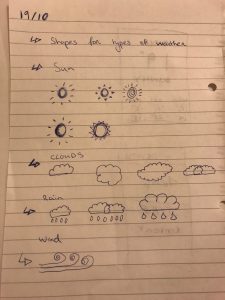 19/10
Shapes for types of weather
Sun
CLOUDS
Rain
Wind